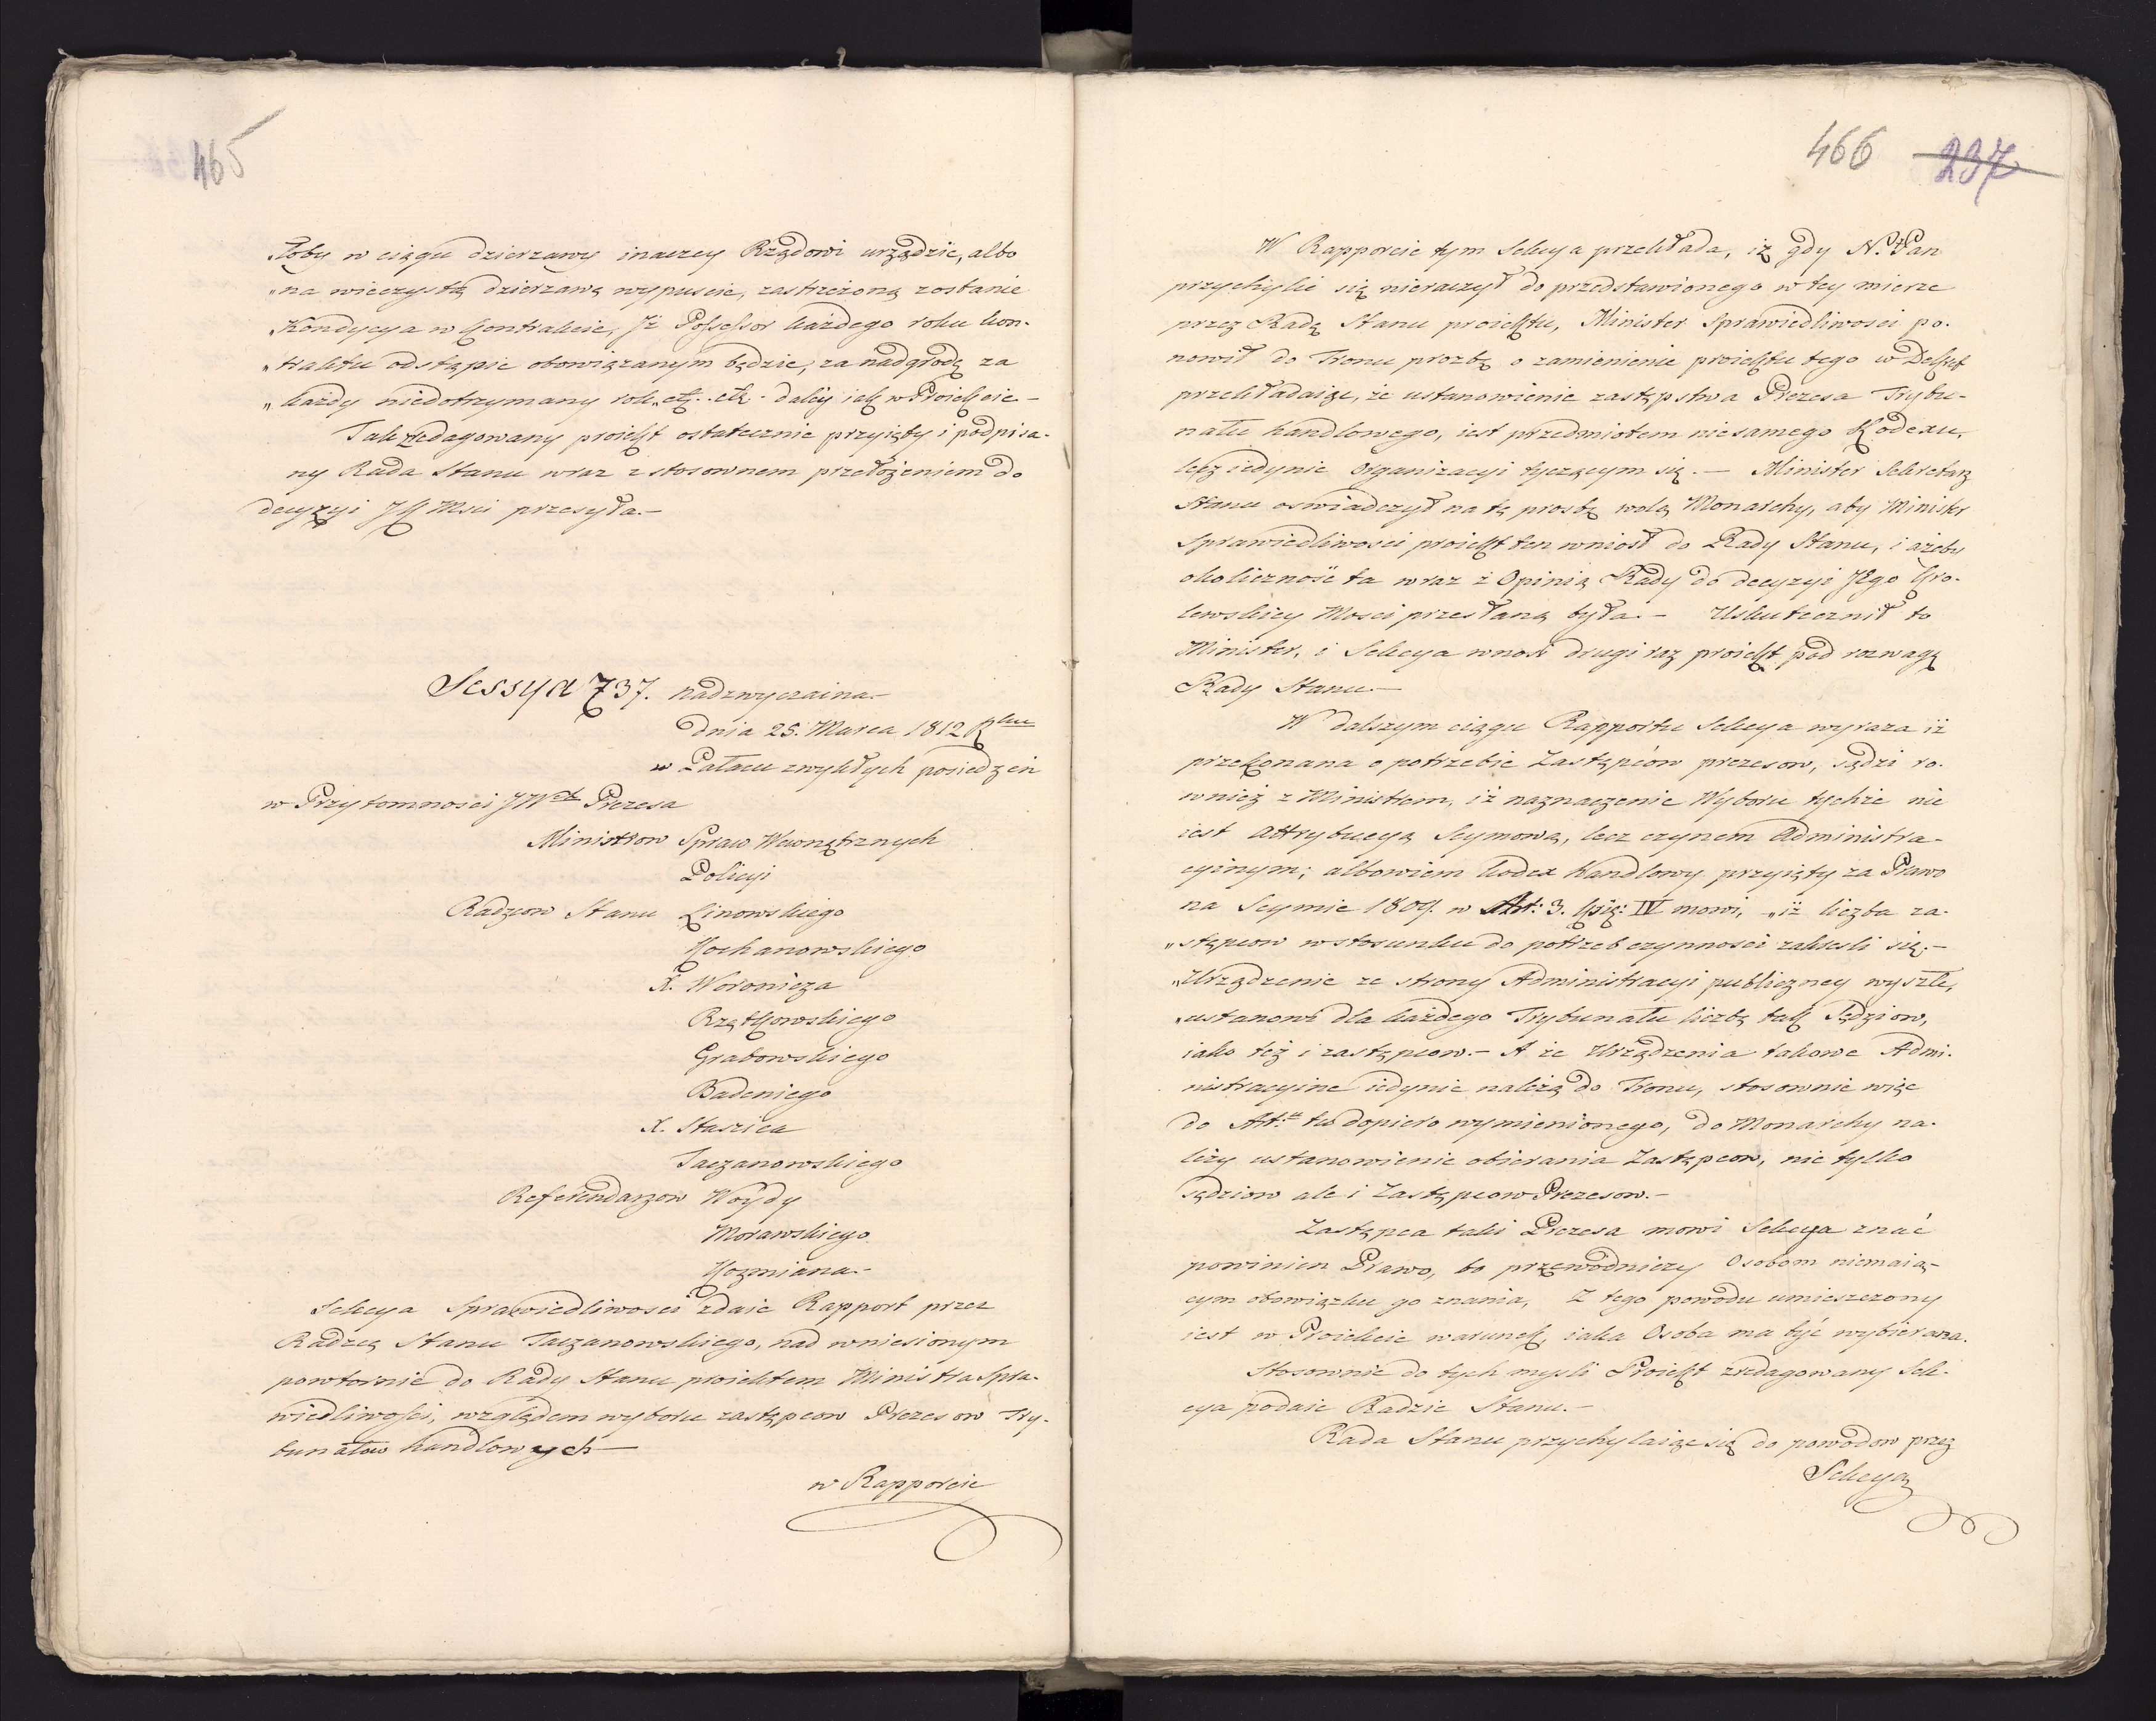 465
„łoby w ciągu dzierzawy inaczey Rządowi urządzić, albo
„na wieczystą dzierzawę wypuscic, zastrzeżoną zostanie
„Kondycya w Kontrakcie, Jż Possessor każdego roku kon-
„traktu odstąpic obowiązanym będzie, za nadgrodę za
„każdy niedotrzymany rok etc. etc. daléy iak w Proiekcie –
Tak zredagowany proiekt ostatecznie przyięty i podpisa-
ny Rada Stanu wraz z stosownem przełożeniem do
decyzyi JK Mści przesyła.–
Sessya 737. nadzwyczaina.–
dnia 25. Marca 1812 Rku
w Pałacu zwykłych posiedzeń
w Przytomnosci JW Prezesa
Ministrow Spraw Wewnętrznych
Policyi
Radzcow Stanu Linowskiego
Kochanowskiego
X. Woronicza
Rzętkowskiego
Grabowskiego
Badeniego
X. Staszica
Taczanowskiego
Referendarzow Woydy
Morawskiego
Kozmiana.–
Sekcya Sprawiedliwosci zdaie Rapport przez
Radzcę Stanu Taczanowskiego, nad wniesionym
powtornie do Rady Stanu proiektem Ministra Spra-
wiedliwości, względem wyboru zastępcow Prezesow Try-
bunałow handlowych –
w Rapporcie
466 237
W Rapporcie tym Sekcya przekłada, iż gdy N. Pan
przychylic się nieraczył do przedstawionego w tey mierze
przez Radę Stanu proiektu, Minister Sprawiedliwosci po-
nowił do Tronu prozbę o zamienienie proiektu tego w Dekret
przekładaiąc, że ustanowienie zastępstwa Prezesa Trybu-
nału handlowego, iest przedmiotem nie samego Kodexu,
lecz iedynie Organizacyi tyczącym się.– Minister Sekretarz
Stanu oswiadczył na tę prosbę wolą Monarchy, aby Minister
Sprawiedliwosci proiekt ten wniosł do Rady Stanu, i ażeby
okoliczność ta wraz z Opinią Rady do decyzyi JEgo Kro-
lewskiey Mosci przesłaną była.– Uskutecznił to
Minister, i Sekcya wnosi drugi raz proiekt pod rozwagę
Rady Stanu.–
W dalszym ciągu Rapportu Sekcya wyraza iż
przekonana o potrzebie Zastępców prezesow, sądzi ro-
wnież z Ministrem, iż naznaczenie Wyboru tychże nie
iest attrybucyą Seymową, lecz czynem Administra-
cyinym; albowiem kodex handlowy przyięty za Prawo
na Seymie 1809. w Art: 3. Księ: IV mowi, „iż liczba za-
„stępcow w stosunku do potrzeb czynnosci zakresli się.–
„Urządzenie ze strony Administracyi publiczney wyszłe,
„ustanowi dla każdego Trybunału liczbę tak Sędziow,
iako też i zastępcow.– A że Urządzenia takowe Admi-
nistracyine iedynie należą do Tronu, stosownie więc
do Art. tu dopiero wymienionego, do Monarchy na-
leży ustanowienie obierania Zastępcow, nie tylko
sędziow ale i Zastępcow Prezesow.–
Zastępca taki Prezesa mowi Sekcya znać
powinien Prawo, bo przewodniczy Osobom niemaią-
cym obowiązku go znania, Z tego powodu umieszczony
iest w Proiekcie warunek, iaka Osoba ma być wybierana.
Stosownie do tych mysli Proiekt zredagowany Sek-
cya podaie Radzie Stanu.–
Rada Stanu przychylaiąc się do powodow przez
Sekcyą